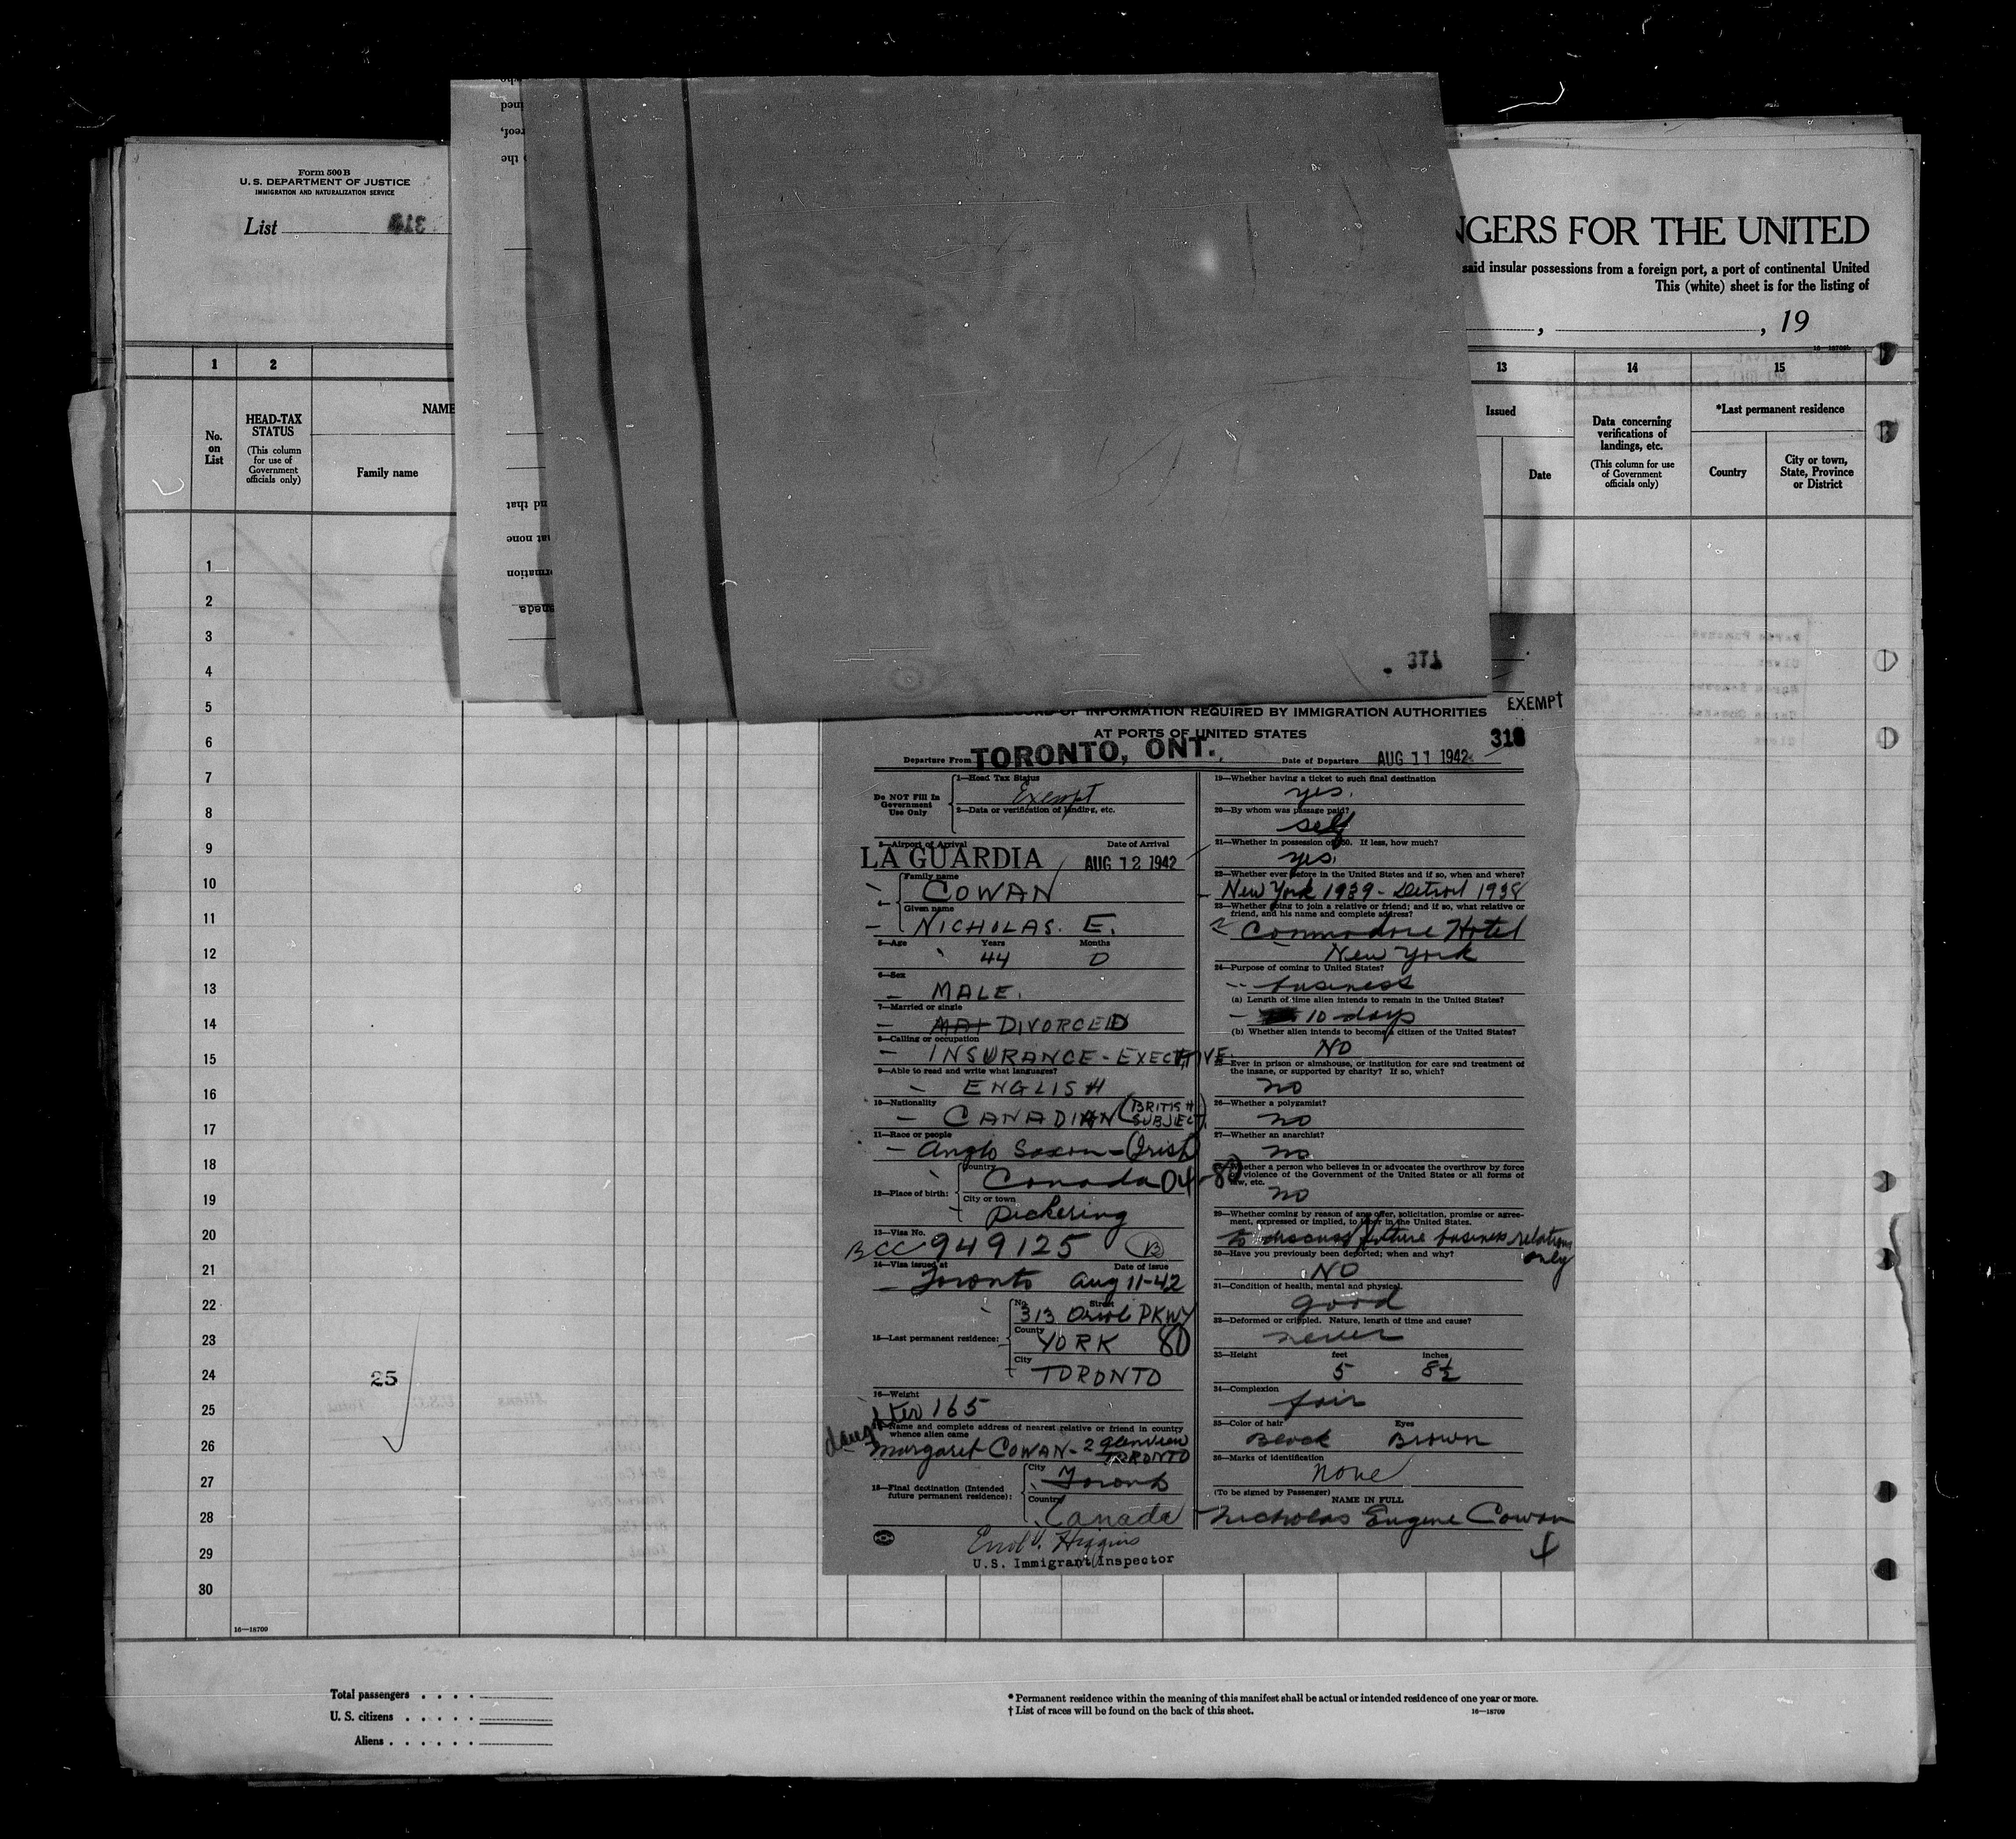 Form 500 B
U. S. DEPARTMENT OF JUSTICE
IMMIGRATION AND NATURALIZATION SERVICE
List
NGERS FOR THE UNITED
said insular possessions from a foreign port, a port of continental United
This (white) sheet is for the listing of
, , 19
1 2 13 14 15
No. on List
HEAD-TAX STATUS
(This column for use of Government officials only)
NAME
Family name
Issued
Date
Data concerning verifications of landings, etc.
(This column for use of Government officials only)
*Last permanent residence
Country
City or town, State, Province or District
1
2
3
4
5
6
7
8
9
10
11
12
13
14
15
16
17
18
19
20
21
22
23
24
25
26
27
28
29
30
25
371
EXEMPT
RECORD OF INFORMATION REQUIRED BY IMMIGRATION AUTHORITIES
AT PORTS OF UNITED STATES
Departure From TORONTO, ONT. Date of Departure AUG 11 1942
Do NOT Fill In Government Use Only
1—Head Tax Status
Exempt
2—Data or verification of landing, etc.
3—Airport of Arrival Date of Arrival
LA GUARDIA AUG 12 1942
4— Family name
COWAN
Given name
NICHOLAS. E.
5—Age Years Months
44 0
6—Sex
MALE.
7—Married or single
DIVORCED
8—Calling or occupation
INSURANCE - EXECUTIVE.
9—Able to read and write what languages?
ENGLISH
10—Nationality
CANADIAN (BRITISH SUBJECT)
11—Race or people
Anglo Saxon - (Irish)
12—Place of birth: Country
Canada 04-80
City or town
Pickering
13—Visa No.
BCC 949125 B
14—Visa issued at Date of issue
Toronto Aug 11-42
15—Last permanent residence: No. Street
313 Oriole PKWY
County
YORK 80
City
TORONTO
16—Weight
165
17—Name and complete address of nearest relative or friend in country whence alien came
daughter
Margaret COWAN - 2 Glenview
TORONTO
18—Final destination (Intended future permanent residence): City
Toronto
Country
Canada
U.S. Immigrant Inspector
19—Whether having a ticket to such final destination
yes.
20—By whom was passage paid?
self
21—Whether in possession of $50. If less, how much?
yes.
22—Whether ever before in the United States and if so, when and where?
New York 1939 - Detroit 1938
23—Whether going to join a relative or friend; and if so, what relative or
friend, and his name and complete address?
Commodore Hotel
New York
24—Purpose of coming to United States?
business
(a) Length of time alien intends to remain in the United States?
10 days
(b) Whether alien intends to become a citizen of the United States?
NO
25—Ever in prison or almshouse, or institution for care and treatment of
the insane, or supported by charity? If so, which?
no
26—Whether a polygamist?
no
27—Whether an anarchist?
no
28—Whether a person who believes in or advocates the overthrow by force
or violence of the Government of the United States or all forms of
law, etc.
no
29—Whether coming by reason of any offer, solicitation, promise or agree-
ment, expressed or implied, to labor in the United States.
to discuss future business relations
only
30—Have you previously been deported; when and why?
NO
31—Condition of health, mental and physical.
good
32—Deformed or crippled. Nature, length of time and cause?
never
33—Height feet inches
5 8½
34—Complexion
fair
35—Color of hair Eyes
Black Brown
36—Marks of identification
none
(To be signed by Passenger)
NAME IN FULL
Nicholas Eugene Cowan
16—18709
Total passengers . . . .
U. S. citizens . . . . .
Aliens . . . . . .
* Permanent residence within the meaning of this manifest shall be actual or intended residence of one year or more.
† List of races will be found on the back of this sheet. 16—18709